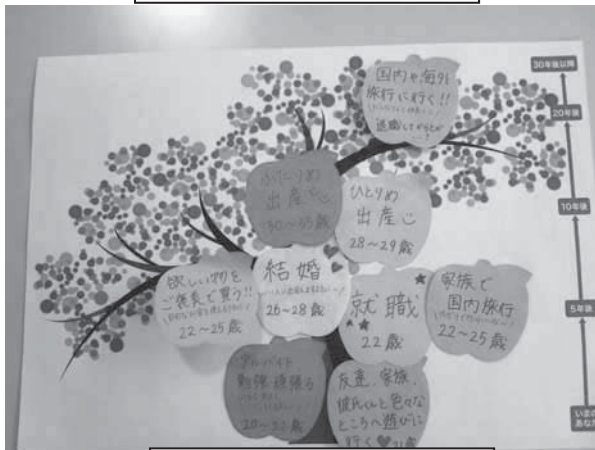 国内や海外
旅行に行く!!
退職してからとか
…!
ふたりめ
出産
30~35歳
ひとりめ
出産
28~29歳
欲しい物を
ご褒美で買う!!
22~25歳
結婚
26~28歳
就職
22歳
家族で
国内旅行
22~25歳
アルバイト
勉強頑張る
20~22歳
友達、家族、
彼氏くんと色々な
ところへ遊びに
行く♥21歳
30年後以降
20年後
10年後
5年後
いまの
あなた